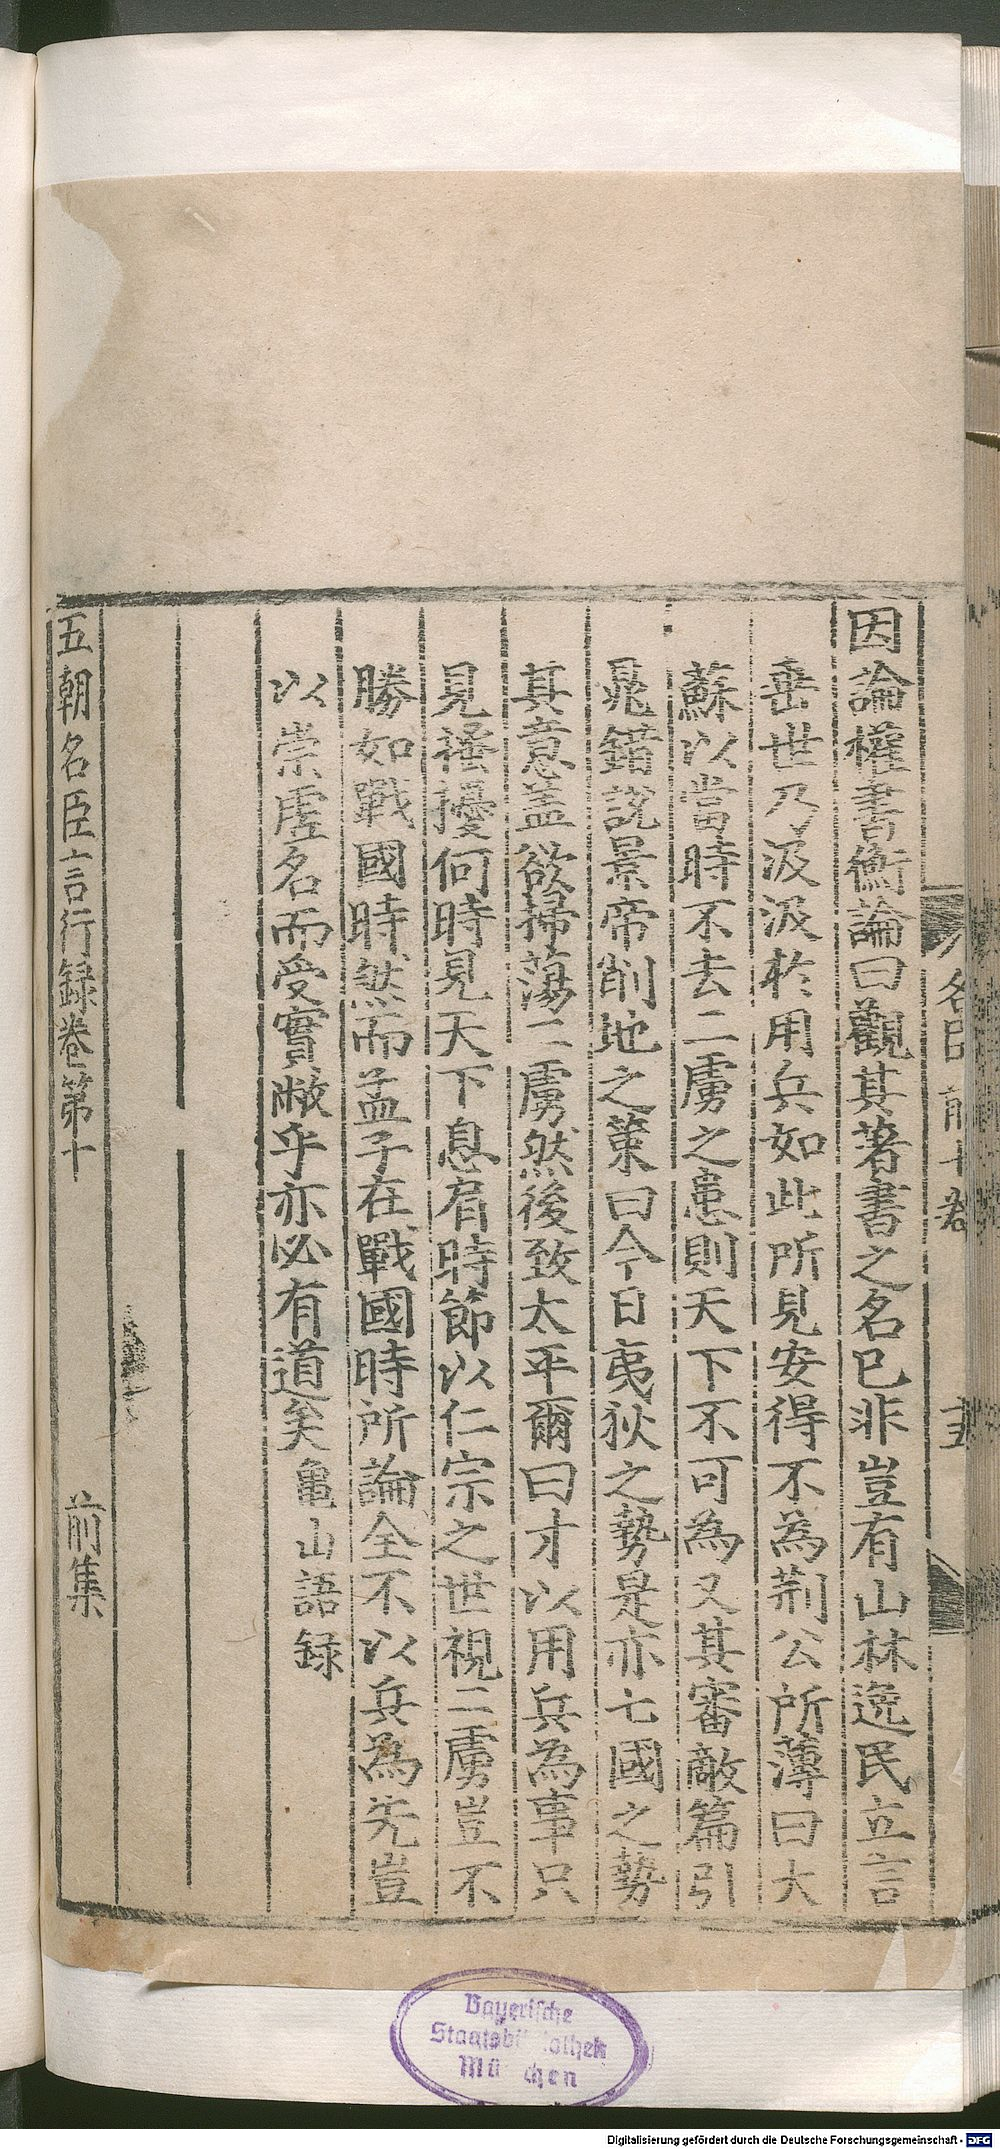 因論權書衡論曰觀其著書之名已非豈有山林逸民立言
垂世乃汲汲於用兵如此所見安得不為荆公所薄曰大
蘇以當時不去二虜之患則天下不可為又其審敵篇引
晁錯說景帝削地之策曰今日夷狄之勢是亦七國之勢
其意盖欲掃蕩二虜然後致太平爾曰才以用兵為事只
見搔擾何時見天下息肩時節以仁宗之世視二虜豈不
勝如戰國時然而孟子在戰國時所論全不以兵為先豈
以崇虛名而受實敝乎亦必有道矣 龜山語録
五朝名臣言行録卷第十 前集
Bayerische
Staatsbibliothek
München
Digitalisierung gefördert durch die Deutsche Forschungsgemeinschaft - DFG